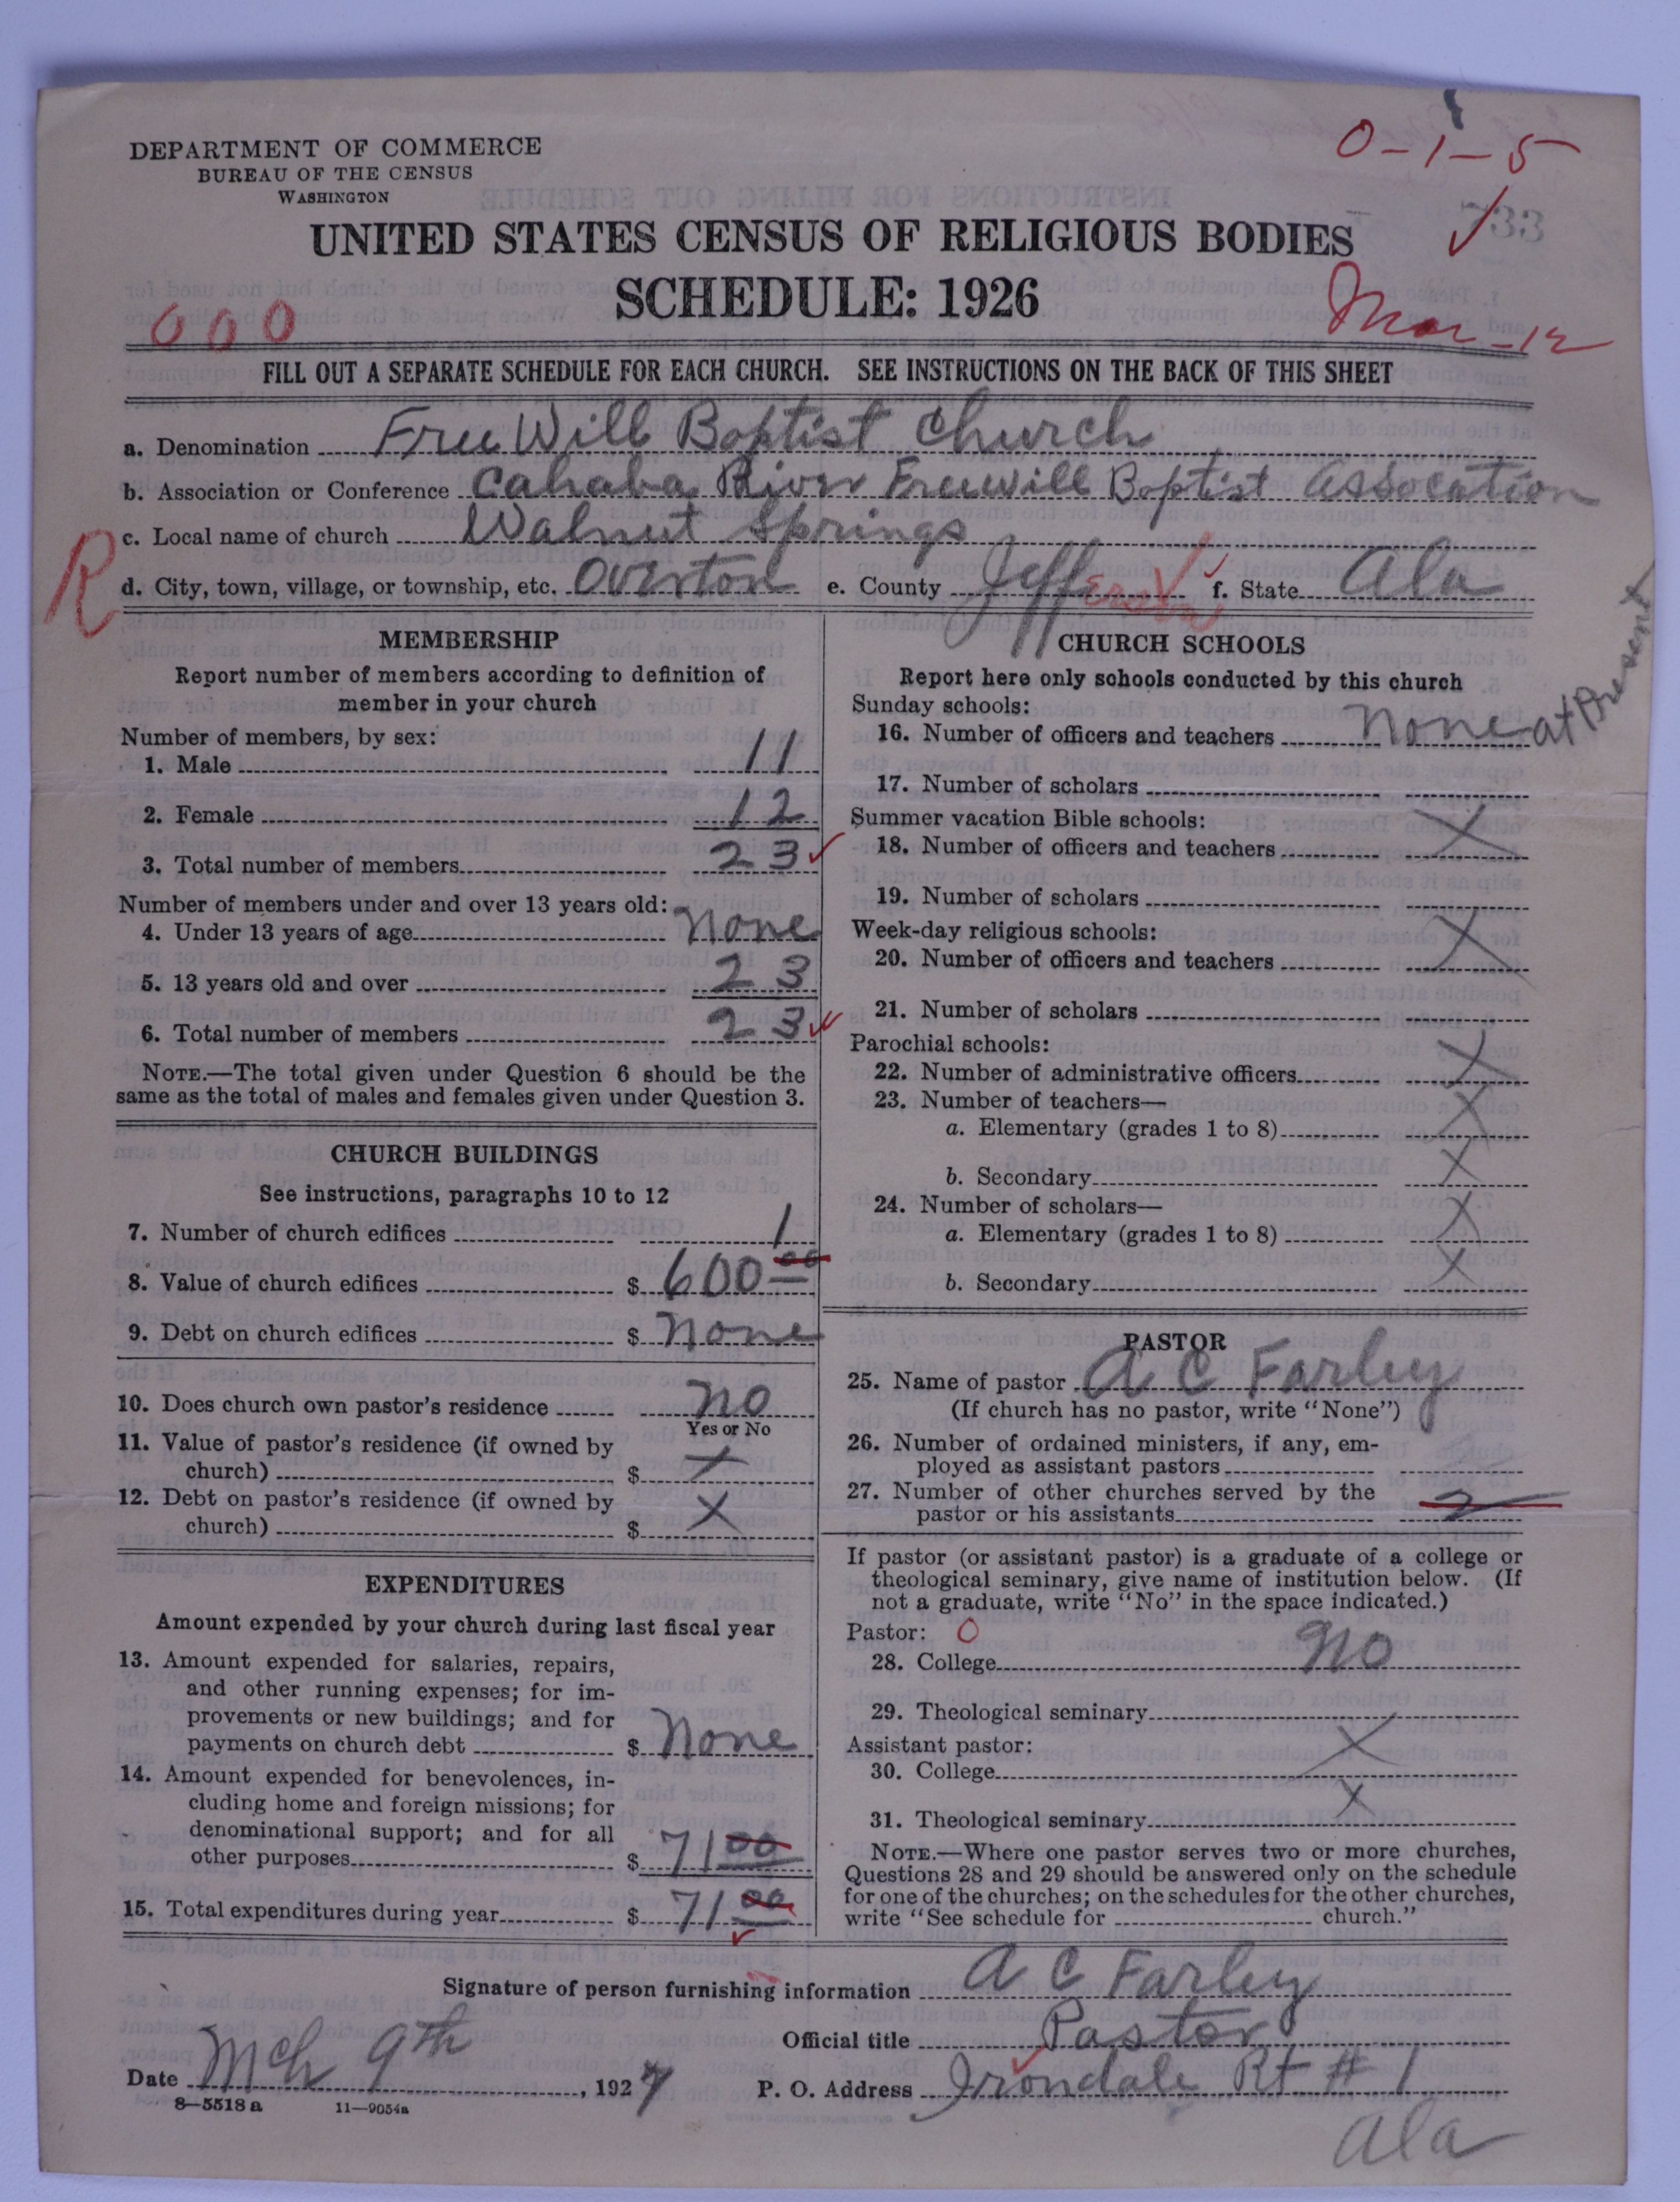 DEPARTMENT OF COMMERCE
BUREAU OF THE CENSUS
WASHINGTON
0-1-5
733
UNITED STATES CENSUS OF RELIGIOUS BODIES
SCHEDULE: 1926
000
Mar-12
FILL OUT A SEPARATE SCHEDULE FOR EACH CHURCH. SEE INSTRUCTIONS ON THE BACK OF THIS SHEET
a. Denomination Free Will Baptist Church
b. Association or Conference Cahaba River Freewill Baptist Assocation
R
c. Local name of church Walnut Springs
d. City, town, village, or township, etc. Overton e. County Jefferson f. State Ala
MEMBERSHIP
Report number of members according to definition of
member in your church
Number of members, by sex:
1. Male 11
2. Female 12
3. Total number of members 23
Number of members under and over 13 years old:
4. Under 13 years of age None
5. 13 years old and over 23
6. Total number of members 23
NOTE.—The total given under Question 6 should be the
same as the total of males and females given under Question 3.
CHURCH BUILDINGS
See instructions, paragraphs 10 to 12
7. Number of church edifices 1
8. Value of church edifices $ 600 00
9. Debt on church edifices $ None
10. Does church own pastor's residence No
Yes or No
11. Value of pastor's residence (if owned by
church) $ X
12. Debt on pastor's residence (if owned by
church) $ X
EXPENDITURES
Amount expended by your church during last fiscal year
13. Amount expended for salaries, repairs,
and other running expenses; for im-
provements or new buildings; and for
payments on church debt $ None
14. Amount expended for benevolences, in-
cluding home and foreign missions; for
denominational support; and for all
other purposes $ 71 00
15. Total expenditures during year $ 71 00
CHURCH SCHOOLS
Report here only schools conducted by this church
Sunday schools:
16. Number of officers and teachers None at Present
17. Number of scholars
Summer vacation Bible schools:
18. Number of officers and teachers X
19. Number of scholars
Week-day religious schools:
20. Number of officers and teachers X
21. Number of scholars
Parochial schools:
22. Number of administrative officers X
23. Number of teachers—
a. Elementary (grades 1 to 8) X
b. Secondary X
24. Number of scholars—
a. Elementary (grades 1 to 8) X
b. Secondary X
PASTOR
25. Name of pastor A C Farley
(If church has no pastor, write "None")
26. Number of ordained ministers, if any, em-
ployed as assistant pastors
27. Number of other churches served by the
pastor or his assistants 2
If pastor (or assistant pastor) is a graduate of a college or
theological seminary, give name of institution below. (If
not a graduate, write "No" in the space indicated.)
Pastor: 0
28. College No
29. Theological seminary
Assistant pastor:
30. College X
31. Theological seminary X
NOTE.—Where one pastor serves two or more churches,
Questions 28 and 29 should be answered only on the schedule
for one of the churches; on the schedules for the other churches,
write "See schedule for church."
Signature of person furnishing information A C Farley
Official title Pastor
Date Mch 9th, 1927 P. O. Address Irondale Rt # 1
Ala
8—5518a 11—9054a